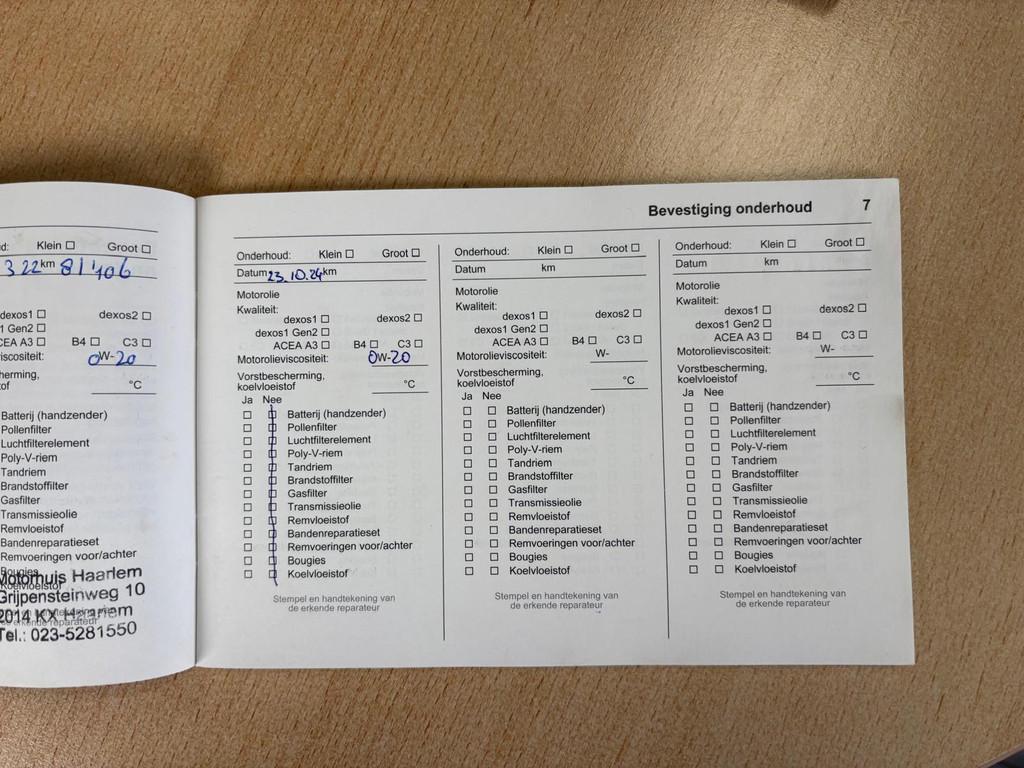 Bevestiging onderhoud 7
Klein ☐ Groot ☐
3 22 km 81406
dexos1 ☐ dexos2 ☐
Gen2 ☐
A3 ☐ B4 ☐ C3 ☐
0W-20
°C
Batterij (handzender)
Pollenfilter
Luchtfilterelement
Poly-V-riem
Tandriem
Brandstoffilter
Gasfilter
Transmissieolie
Remvloeistof
Bandenreparatieset
Remvoeringen voor/achter
Bougies
Koelvloeistof
Motorhuis Haarlem
Grijpensteinweg 10
2014 KX Haarlem
Tel.: 023-5281550
Onderhoud: Klein ☐ Groot ☐
Datum 23.10.24 km
Motorolie
Kwaliteit:
dexos1 ☐ dexos2 ☐
dexos1 Gen2 ☐
ACEA A3 ☐ B4 ☐ C3 ☐
Motorolieviscositeit: 0W-20
Vorstbescherming,
koelvloeistof °C
Ja Nee
☐ ☐ Batterij (handzender)
☐ ☐ Pollenfilter
☐ ☐ Luchtfilterelement
☐ ☐ Poly-V-riem
☐ ☐ Tandriem
☐ ☐ Brandstoffilter
☐ ☐ Gasfilter
☐ ☐ Transmissieolie
☐ ☐ Remvloeistof
☐ ☐ Bandenreparatieset
☐ ☐ Remvoeringen voor/achter
☐ ☐ Bougies
☐ ☐ Koelvloeistof
Stempel en handtekening van
de erkende reparateur
Onderhoud: Klein ☐ Groot ☐
Datum km
Motorolie
Kwaliteit:
dexos1 ☐ dexos2 ☐
dexos1 Gen2 ☐
ACEA A3 ☐ B4 ☐ C3 ☐
Motorolieviscositeit: W-
Vorstbescherming,
koelvloeistof °C
Ja Nee
☐ ☐ Batterij (handzender)
☐ ☐ Pollenfilter
☐ ☐ Luchtfilterelement
☐ ☐ Poly-V-riem
☐ ☐ Tandriem
☐ ☐ Brandstoffilter
☐ ☐ Gasfilter
☐ ☐ Transmissieolie
☐ ☐ Remvloeistof
☐ ☐ Bandenreparatieset
☐ ☐ Remvoeringen voor/achter
☐ ☐ Bougies
☐ ☐ Koelvloeistof
Stempel en handtekening van
de erkende reparateur
Onderhoud: Klein ☐ Groot ☐
Datum km
Motorolie
Kwaliteit:
dexos1 ☐ dexos2 ☐
dexos1 Gen2 ☐
ACEA A3 ☐ B4 ☐ C3 ☐
Motorolieviscositeit: W-
Vorstbescherming,
koelvloeistof °C
Ja Nee
☐ ☐ Batterij (handzender)
☐ ☐ Pollenfilter
☐ ☐ Luchtfilterelement
☐ ☐ Poly-V-riem
☐ ☐ Tandriem
☐ ☐ Brandstoffilter
☐ ☐ Gasfilter
☐ ☐ Transmissieolie
☐ ☐ Remvloeistof
☐ ☐ Bandenreparatieset
☐ ☐ Remvoeringen voor/achter
☐ ☐ Bougies
☐ ☐ Koelvloeistof
Stempel en handtekening van
de erkende reparateur